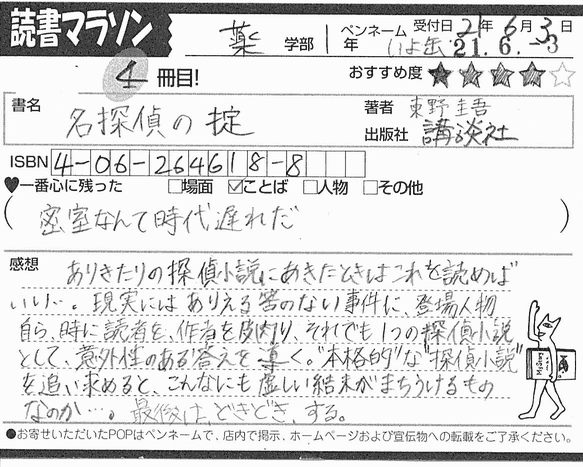 読書マラソン
薬 学部 年 ペンネーム いよ缶 受付日 21年6月3日
21.6.-3
4 冊目! おすすめ度 ★★★★☆
書名 名探偵の掟
著者 東野圭吾
出版社 講談社
ISBN 4-06-264618-8
♥一番心に残った □場面 ☑ことば □人物 □その他
(密室なんて時代遅れだ)
感想 ありきたりの探偵小説にあきたときはこれを読めば
いい…。現実にはありえる筈のない事件に、登場人物
自ら、時に読者を、作者を皮肉り、それでも1つの探偵小説
として、意外性のある答えを導く。"本格的"な"探偵小説"
を追い求めると、こんなにも虚しい結末がまちうけるもの
なのか…。最後は、どきどき、する。
●お寄せいただいたPOPはペンネームで、店内で掲示、ホームページおよび宣伝物への転載をご了承ください。